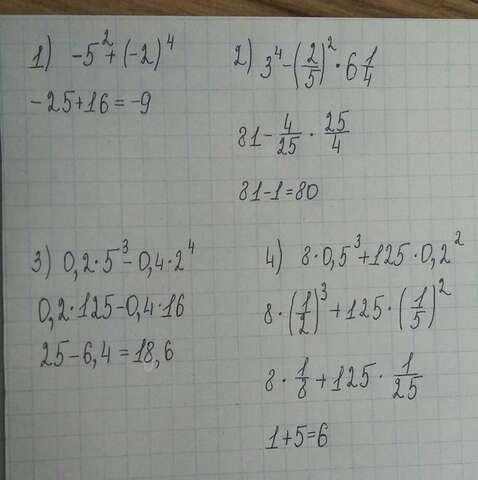 1) -5² + (-2)⁴
-25+16=-9
2) 3⁴-(2/5)²·6 1/4
81-4/25·25/4
81-1=80
3) 0,2·5³-0,4·2⁴
0,2·125-0,4·16
25-6,4=18,6
4) 8·0,5³+125·0,2²
8·(1/2)³+125·(1/5)²
8·1/8+125·1/25
1+5=6